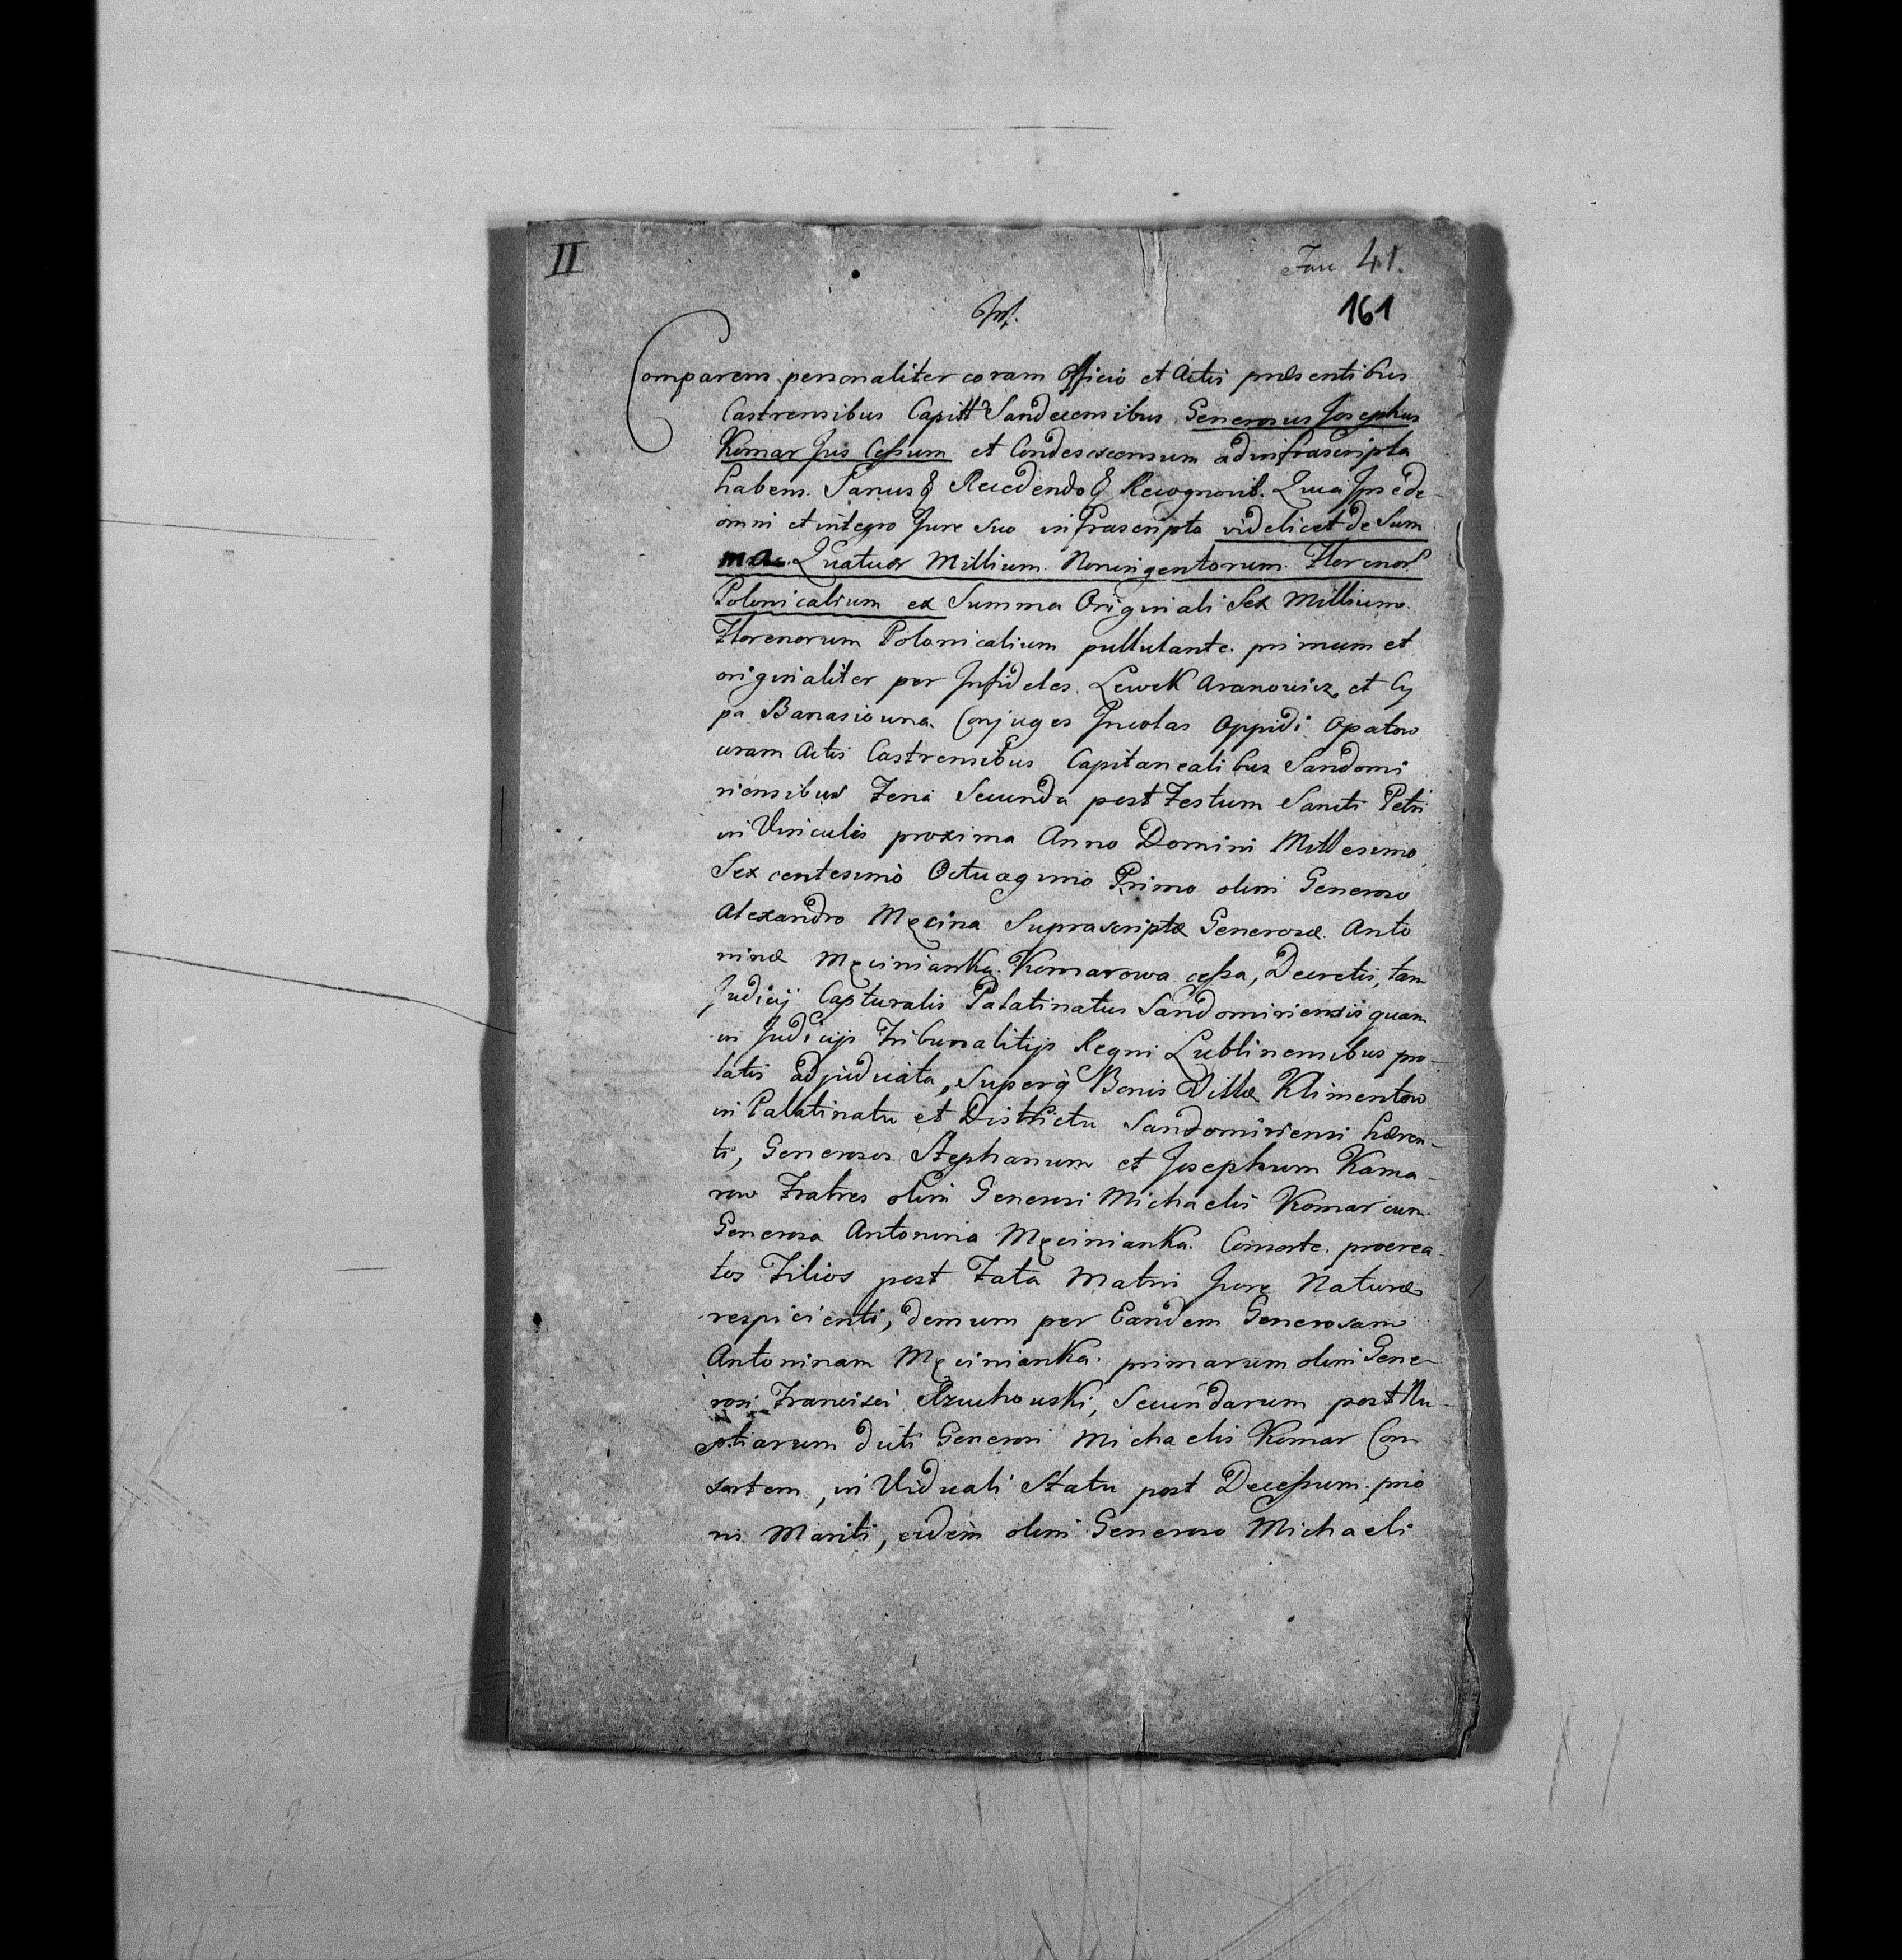 II
Fasc 41.
161
Comparens personaliter coram Officio et Actis præsentibus
Castrensibus Capitt Sandecensibus Generosus Josephus
Komar Jus Cessum et Condescensum ad infrascripta
habens. Sanus Recedendo Recognovit. Quia Ipse de
omni et integro Jure suo infrascripto videlicet de Sum
ma Quatuor Millium Noningentorum Florenor
Polonicalium ex Summa Originali Sex Millium
Florenorum Polonicalium pullulante primum et
originaliter per Infideles Lewek Aranowicz et Cy
pa Banasiowna Conjuges Incolas Oppidi Opatow
coram Actis Castrensibus Capitanealibus Sandomi
riensibus Feria Secunda post Festum Sancti Petri
in Vinculis proxima Anno Domini Millesimo
Sex centesimò Octuagimo Primo olim Generoso
Alexandro Męcina Suprascriptæ Generosæ Anto
ninæ Męcinianka Komarowa cessa, Decretis, tam
Judicij Capturalis Palatinatus Sandomiriensis quam
in Judicijs Tribunalitijs Regni Lublinensibus pro-
latis adjudicata, Superq Bonis Villæ Klimentow
in Palatinatu et Districtu Sandomiriensi hæren-
ti, Generosos Stephanum et Josephum Koma-
row Fratres olim Generosi Michaelis Komar cum
Generosa Antonina Męcinianka Consorte procrea-
tos Filios post Fata Matris Jure Naturæ
respicienti, demum per Eandem Generosam
Antoninam Męcinianka primarum olim Gene-
rosi Francisci Rzuchowski, Secundarum post Nu-
ptiarum dicti Generosi Michaelis Komar Con
sortem, in Viduali Statu post Decessum prio
ris Mariti, eidem olim Generoso Michaeli